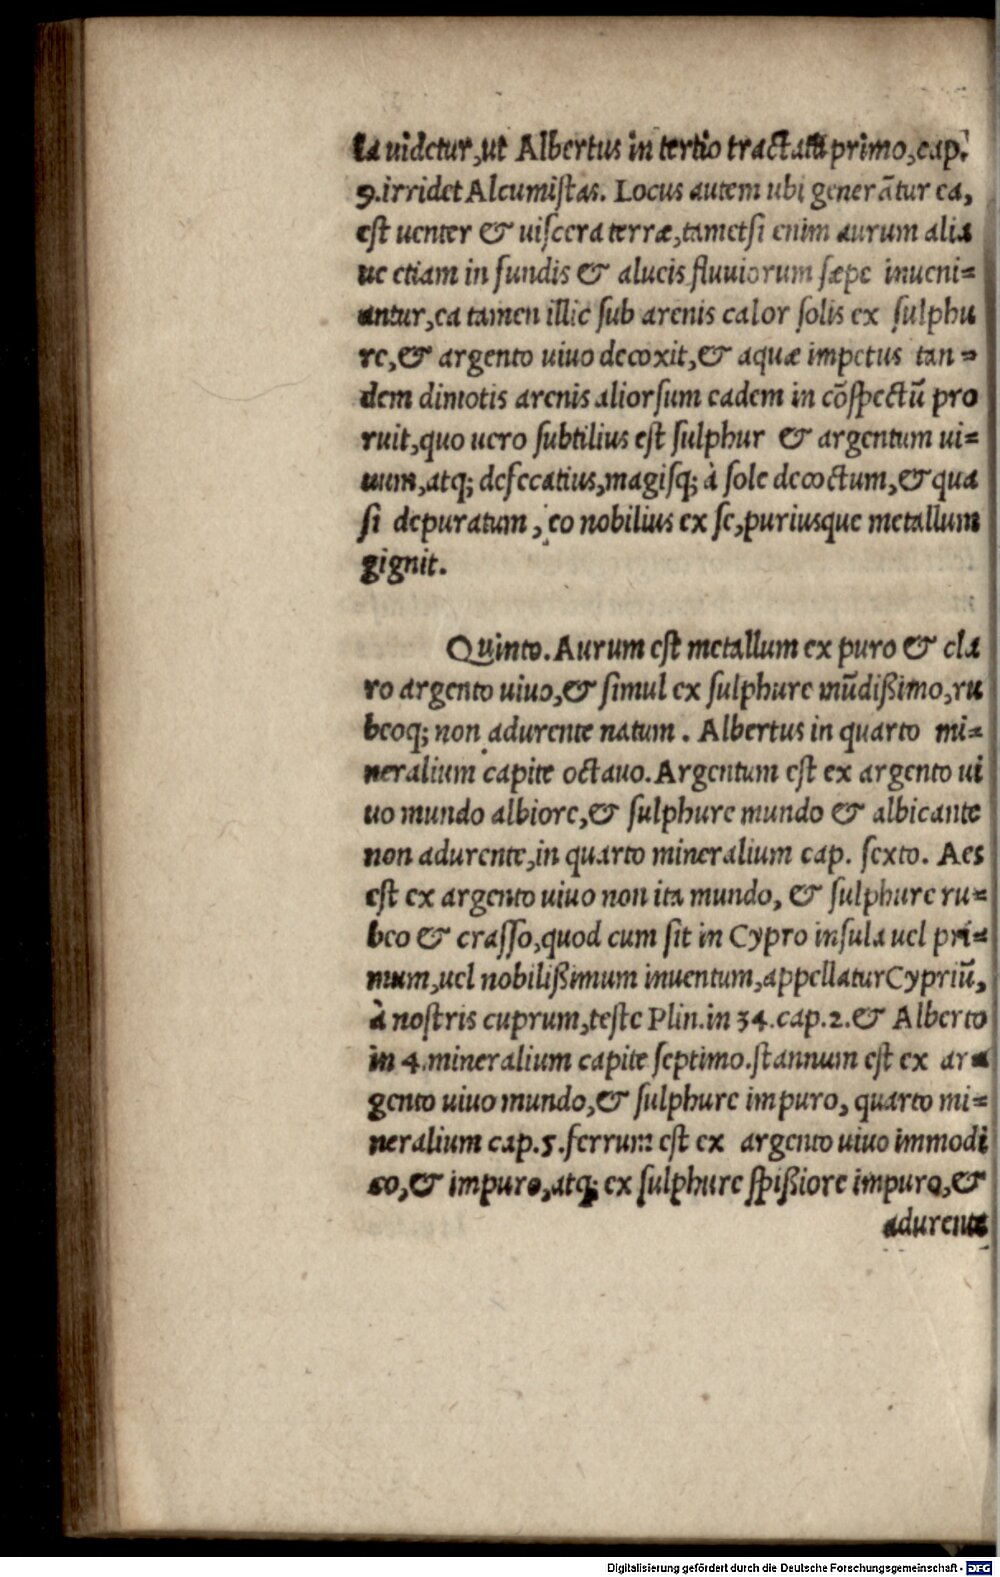 ta uidetur,ut Albertus in tertio tractatu primo,cap.
9.irridet Alcumiſtas. Locus autem ubi generãtur ea,
eſt uenter & uiſcera terræ,tametſi enim aurum alia
ue etiam in fundis & alueis fluuiorum ſæpe inueni=
antur,ea tamen illic ſub arenis calor ſolis ex ſulphu
re,& argento uiuo decoxit,& aquæ impetus tan=
dem dimotis arenis aliorſum eadem in cõſpectũ pro
ruit,quo uero ſubtilius eſt ſulphur & argentum ui=
uum,atq; defecatius,magiſq; à ſole decoctum,& qua
ſi depuratum, eo nobilius ex ſe,puriusque metallum
gignit.
Quinto. Aurum eſt metallum ex puro & cla
ro argento uiuo,& ſimul ex ſulphure mũdißimo,ru
beoq; non adurente natum. Albertus in quarto mi=
neralium capite octauo. Argentum eſt ex argento ui
uo mundo albiore,& ſulphure mundo & albicante
non adurente,in quarto mineralium cap. ſexto. Aes
eſt ex argento uiuo non ita mundo, & ſulphure ru=
beo & craſſo,quod cum ſit in Cypro inſula uel pri=
mum,uel nobilißimum inuentum,appellatur Cypriũ,
à noſtris cuprum,teſte Plin.in 34.cap.2.& Alberto
in 4.mineralium capite ſeptimo.ſtannum eſt ex ar=
gento uiuo mundo,& ſulphure impuro, quarto mi=
neralium cap.5.ferrum eſt ex argento uiuo immodi
co,& impuro,atq; ex ſulphure ſpißiore impuro,&
adurente
Digitalisierung gefördert durch die Deutsche Forschungsgemeinschaft - DFG